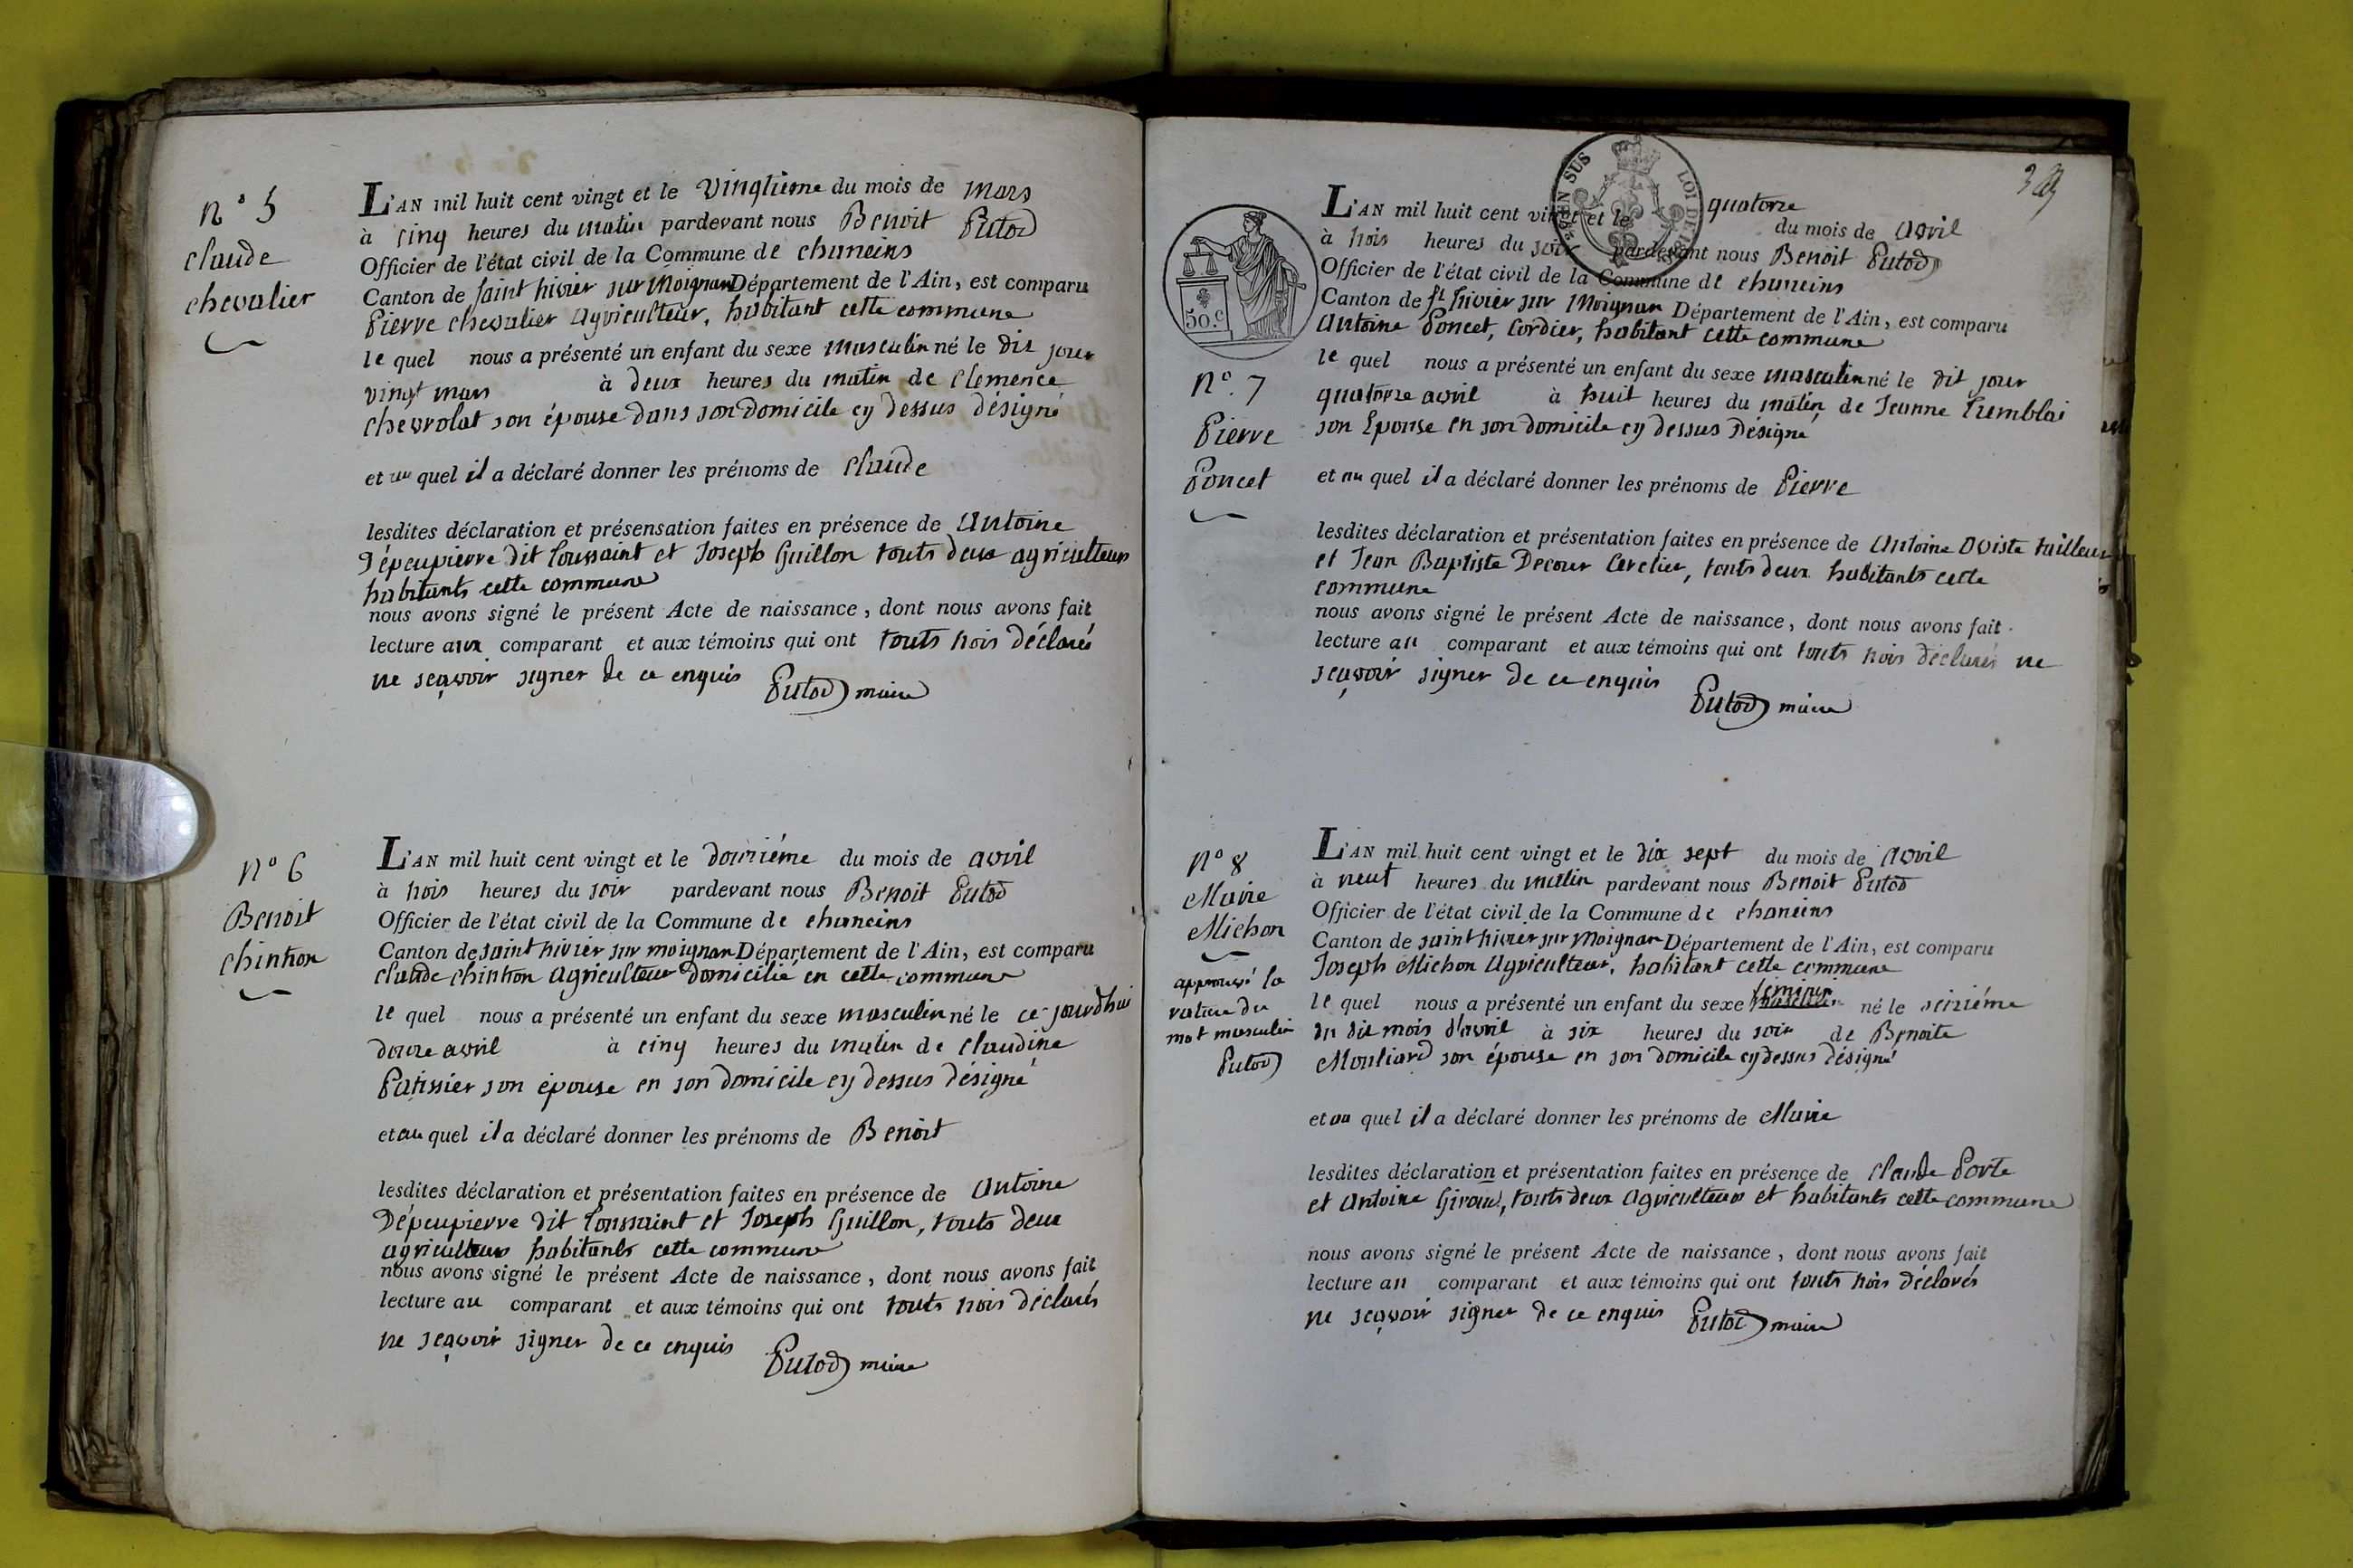 n° 5
claude
chevalier
L'AN mil huit cent vingt et le vingtième du mois de mars
à cinq heures du matin pardevant nous Benoit Putod
Officier de l'état civil de la Commune de chaneins
Canton de saint trivier sur moignan Département de l'Ain, est comparu
Pierre chevalier agriculteur, habitant cette commune
le quel nous a présenté un enfant du sexe masculin né le dit jour
vingt mars à deux heures du matin de clemence
chevrolat son épouse dans son domicile cy dessus désigné
et au quel il a déclaré donner les prénoms de claude
lesdites déclaration et présensation faites en présence de Antoine
Dépeupierre dit Toussaint et Joseph Guillon touts deux agriculteurs
habitants cette commune
nous avons signé le présent Acte de naissance, dont nous avons fait
lecture aux comparant et aux témoins qui ont touts trois déclarés
ne seçavoir signer de ce enquis
Putod maire
n° 6
Benoit
chintron
L'AN mil huit cent vingt et le douzième du mois de avril
à trois heures du soir pardevant nous Benoit Putod
Officier de l'état civil de la Commune de chaneins
Canton de saint trivier sur moignan Département de l'Ain, est comparu
claude chintron agriculteur domicilié en cette commune
le quel nous a présenté un enfant du sexe masculin né le ce jourd'hui
douze avril à cinq heures du matin de claudine
Patissier son épouse en son domicile cy dessus désigné
et au quel il a déclaré donner les prénoms de Benoit
lesdites déclaration et présentation faites en présence de Antoine
Dépeupierre dit Toussaint et Joseph Guillon, touts deux
agriculteurs habitants cette commune
nous avons signé le présent Acte de naissance, dont nous avons fait
lecture au comparant et aux témoins qui ont touts trois déclarés
ne seçavoir signer de ce enquis
Putod maire
EN SUS
LOI DE
50.c
n°. 7
Pierre
Poncet
L'AN mil huit cent vingt et le quatorze du mois de avril
à trois heures du soir pardevant nous Benoit Putod
Officier de l'état civil de la Commune de chaneins
Canton de st trivier sur moignan Département de l'Ain, est comparu
Antoine Poncet, Cordier, habitant cette commune
le quel nous a présenté un enfant du sexe masculin né le dit jour
quatorze avril à huit heures du matin de Jeanne Tremblai
son Epouse en son domicile cy dessus Désigné
et au quel il a déclaré donner les prénoms de Pierre
lesdites déclaration et présentation faites en présence de Antoine Oviste tailleur
et Jean Baptiste Decour Cerclier, touts deux habitants cette
commune
nous avons signé le présent Acte de naissance, dont nous avons fait
lecture au comparant et aux témoins qui ont touts trois déclarés ne
seçavoir signer de ce enquis
Putod maire
n° 8
Marie
Michon
approuvé la
rature du
mot masculin
Putod
L'AN mil huit cent vingt et le dix sept du mois de avril
à neuf heures du matin pardevant nous Benoit Putod
Officier de l'état civil de la Commune de chaneins
Canton de saint trivier sur moignan Département de l'Ain, est comparu
Joseph Michon Agriculteur, habitant cette commune
feminin
le quel nous a présenté un enfant du sexe masculin né le seizième
du dit mois d'avril à six heures du soir de Benoite
Mouliard son épouse en son domicile cy dessus désigné
et au quel il a déclaré donner les prénoms de Marie
lesdites déclaration et présentation faites en présence de claude Porte
et Antoine Giroud, touts deux agriculteurs et habitants cette commune
nous avons signé le présent Acte de naissance, dont nous avons fait
lecture au comparant et aux témoins qui ont touts trois déclarés
ne seçavoir signer de ce enquis
Putod maire